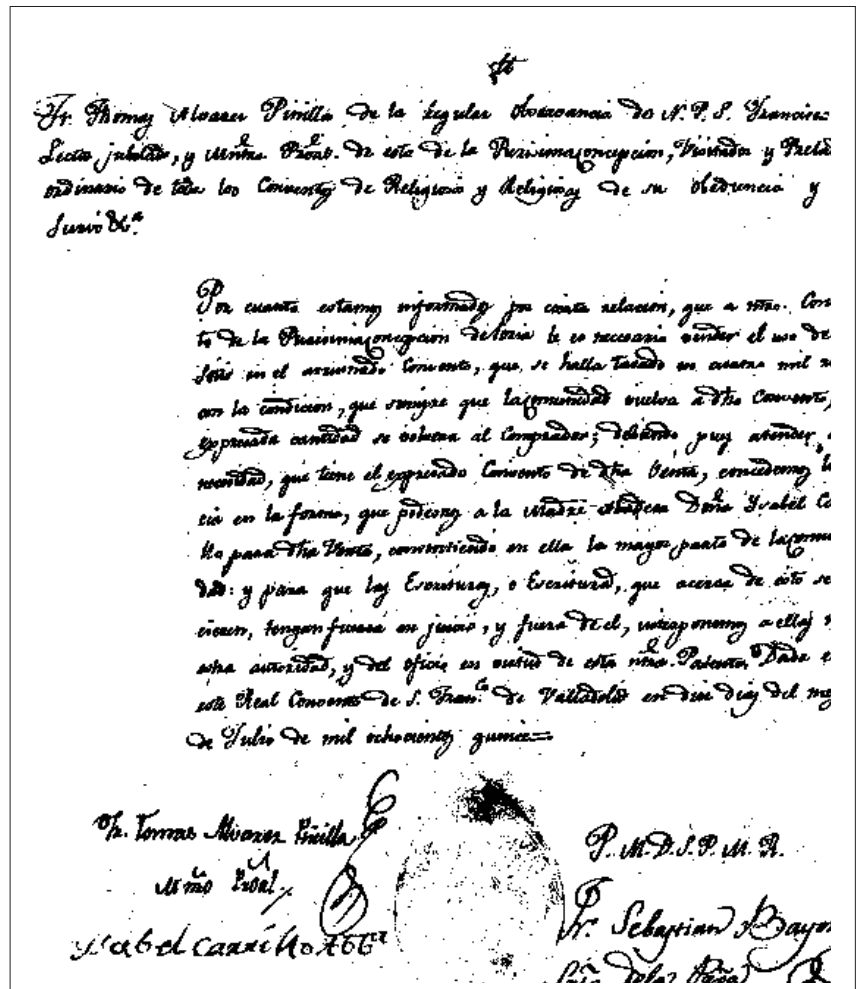 Fr. Thomas Alvarez Pinilla de la Regular observancia de N. P. S. Francisco
Lector jubilado, y Mntro Proal. de esta de la Purisima concepcion, Visitador y Prela
ordinario de todos los Conventos de Religiosos y Religiosas de su obediencia y
Por cuanto estamos informados por cierta relacion, que a ntro. Con
to de la Purisima concepcion de Soria le es necesario vender el uso de
sitio en el arruinado Convento, que se halla tasado en cuatro mil
con la condicion, que siempre que la comunidad vuelva a dho Convento,
expresada cantidad se volvera al Comprador; debiendo pues atender
necesidad, que tiene el expresado Convento de dha Venta, concedemos
cia en la forma, que podemos a la Madre Abadesa Doña Ysabel Ca
llo para dha Venta, consintiendo en ella la mayor parte de la comu
dad: y para que las Escrituras, o Escritura, que acerca de esto se
cieren, tengan fuerza en juicio, y fuera de el, interponemos a ellas
estra autoridad, y del oficio en virtud de esta ntra. Patente. Dada e
este Real Convento de S. Franco de Valladolid en diez dias del me
de Julio de mil ochocientos quince
Fr. Tomas Alvarez Pinilla
Mntro Proal
P. M. D. S. P. M. R.
Ysabel Carrillo Abba
Fr. Sebastian Bayon